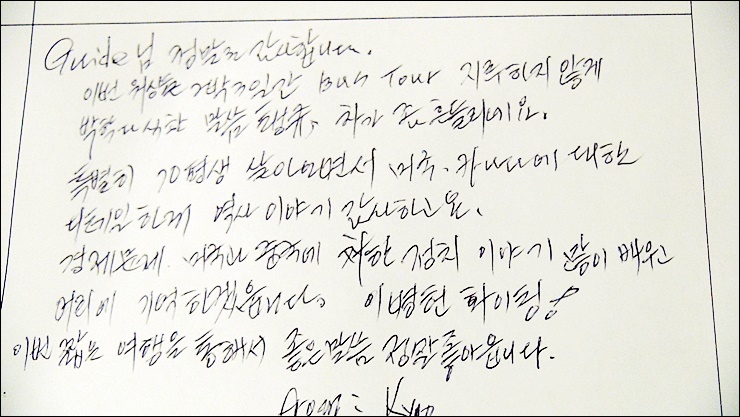 Guide님 정말로 감사합니다.
이번 2박3일간 Bus Tour 지루하지 않게
박학다식한 말씀 차가 좀 흔들리네요.
특별히 70평생 살아오면서 미국. 카나다에 대한
디테일하게 역사 이야기 감사하고요.
경제문제. 미국과 중국에 정치 이야기 많이 배워
머리에 기억하겠습니다. 이병헌 화이팅!
이번 짧은 여행을 통해서 좋은말씀 정말 좋아옵니다.
from: Kyo